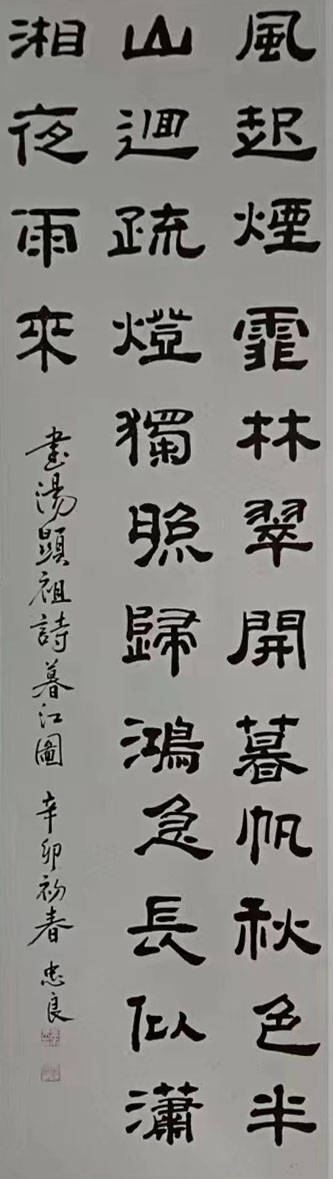 風起煙霏林翠開暮帆秋色半
山迴疏燈獨照歸鴻急長似瀟
湘夜雨來
書湯顯祖詩暮江圖 辛卯初春 忠良